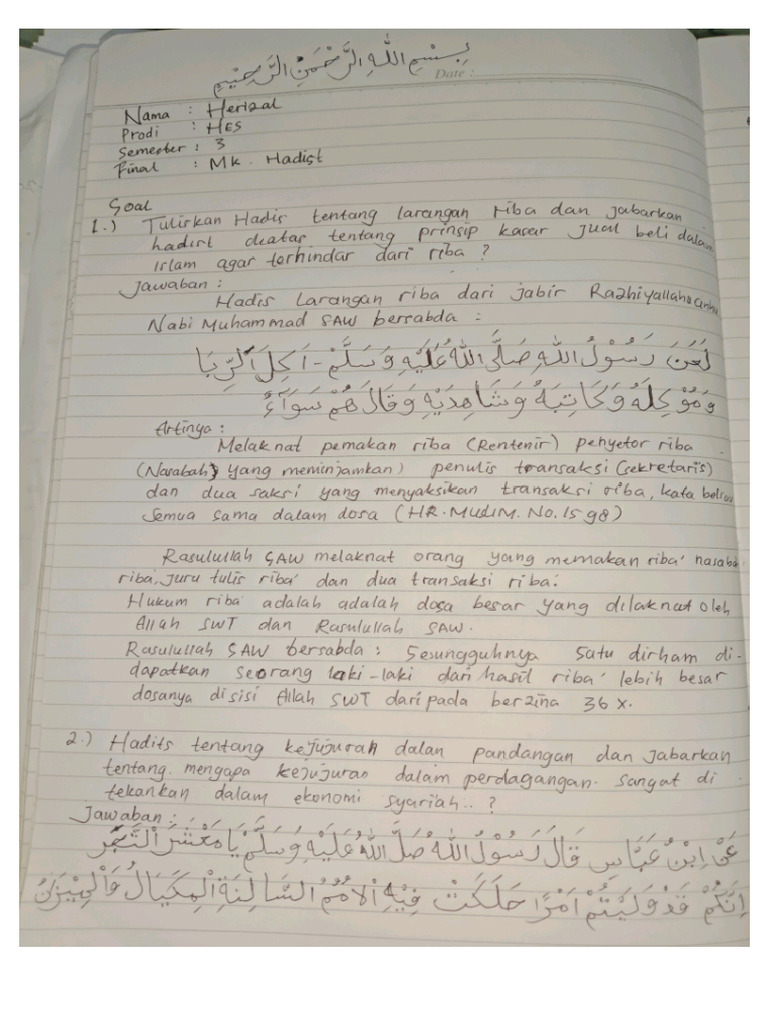 بِسْمِ اللهِ الرَّحْمَنِ الرَّحِيْمِ
Date :
Nama : Herizal
Prodi : HES
Semester : 3
Final : Mk. Hadist
Soal
1.) Tuliskan Hadis tentang larangan riba dan jabarkan
hadist diatas tentang prinsip dasar jual beli dalam
Islam agar terhindar dari riba ?
Jawaban :
Hadis Larangan riba dari jabir Razhiyallahu anhu
Nabi Muhammad SAW bersabda :
لَعَنَ رَسُوْلُ اللهِ صَلَّى اللهُ عَلَيْهِ وَسَلَّمْ - اَكِلَ الرِّبَا
وَمُوْكِلَهُ وَكَاتِبَهُ وَشَاهِدَيْهِ وَقَالَ هُمْ سَوَآءٌ
Artinya :
Melaknat pemakan riba (Rentenir) penyetor riba
(Nasabah) yang meminjamkan) penulis transaksi (sekretaris)
dan dua saksi yang menyaksikan transaksi riba, kata beliau
Semua sama dalam dosa (HR. Muslim. No. 1598)
Rasulullah SAW melaknat orang yang memakan riba' nasabah
riba, juru tulis riba' dan dua transaksi riba.
Hukum riba' adalah adalah dosa besar yang dilaknat oleh
Allah SWT dan Rasulullah SAW.
Rasulullah SAW bersabda : Sesungguhnya satu dirham di-
dapatkan seorang laki-laki dari hasil riba' lebih besar
dosanya disisi Allah SWT daripada berzina 36 x.
2.) Hadits tentang kejujuran dalan pandangan dan jabarkan
tentang. mengapa kejujuran dalam perdagangan. sangat di
tekankan dalam ekonomi syariah.. ?
Jawaban :
عَنْ اِبْنُ عَبَّاسِ قَالَ رَسُوْلُ اللهُ صَلَّ اللهُ عَلَيْهِ وَسَلَّمْ يَا مَعْشَرَ التَّجَّرِ
اِنَّكُمْ قَدْ وَلَيْتُمْ اَمْرًا حَلَكَتْ فِيْهِ الْاُمَمُ السَّالِفَةِ الْمِكْيَالُ وَالْمِيْزَنُ